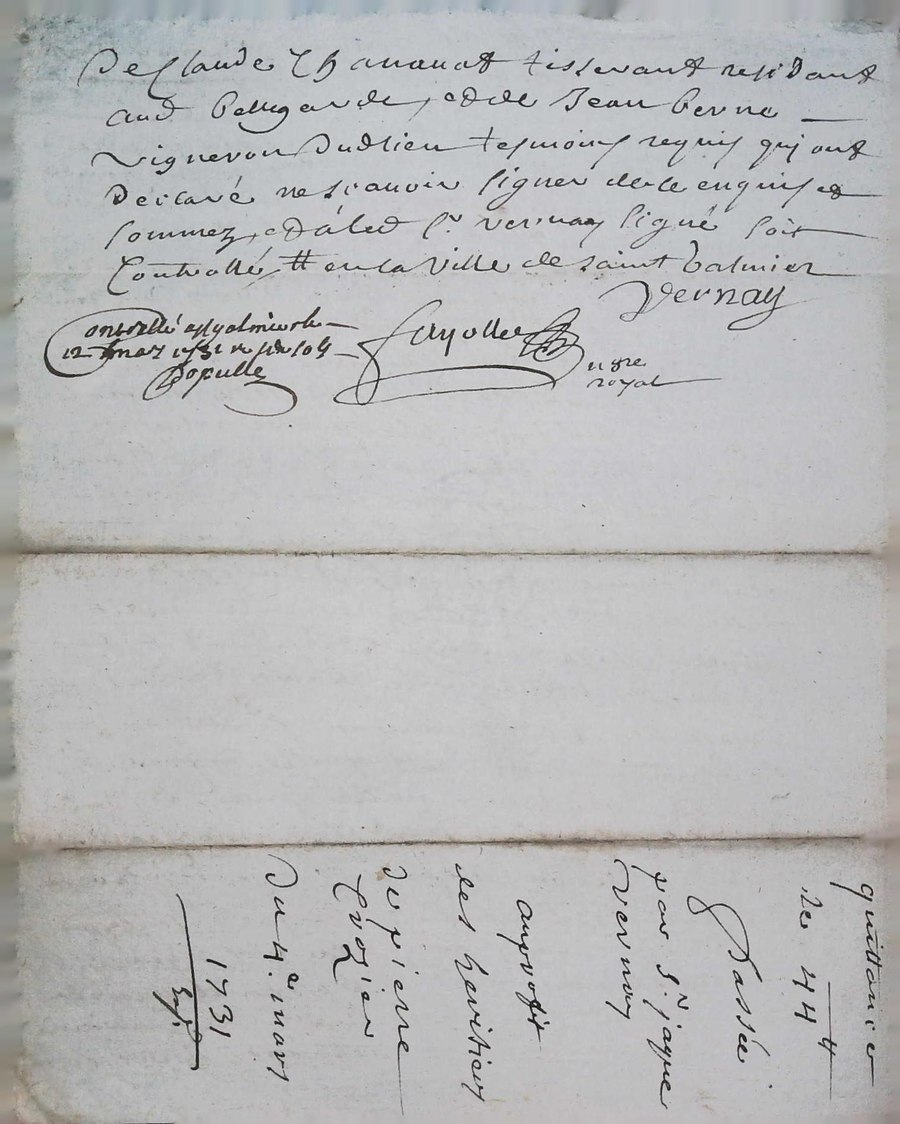 De Claude Chananat tisserant residant
aud bellegarde, et de Jean berne
vigneron dudlieu tesmoins requis qui ont
declaré ne scavoir signer de ce enquis et
sommez, et a led sr. vernay signé soit
Controllé, en la ville de saint Galmier
Vernay
Controllé a St galmier le
12 mar 1731
Populle
fayolle
nore
royal
quittance
de 44 ₶
Passée
par Sr jaque
vernay
au profit
des heritiers
de pierre
Crozier
Du 4e mars
1731